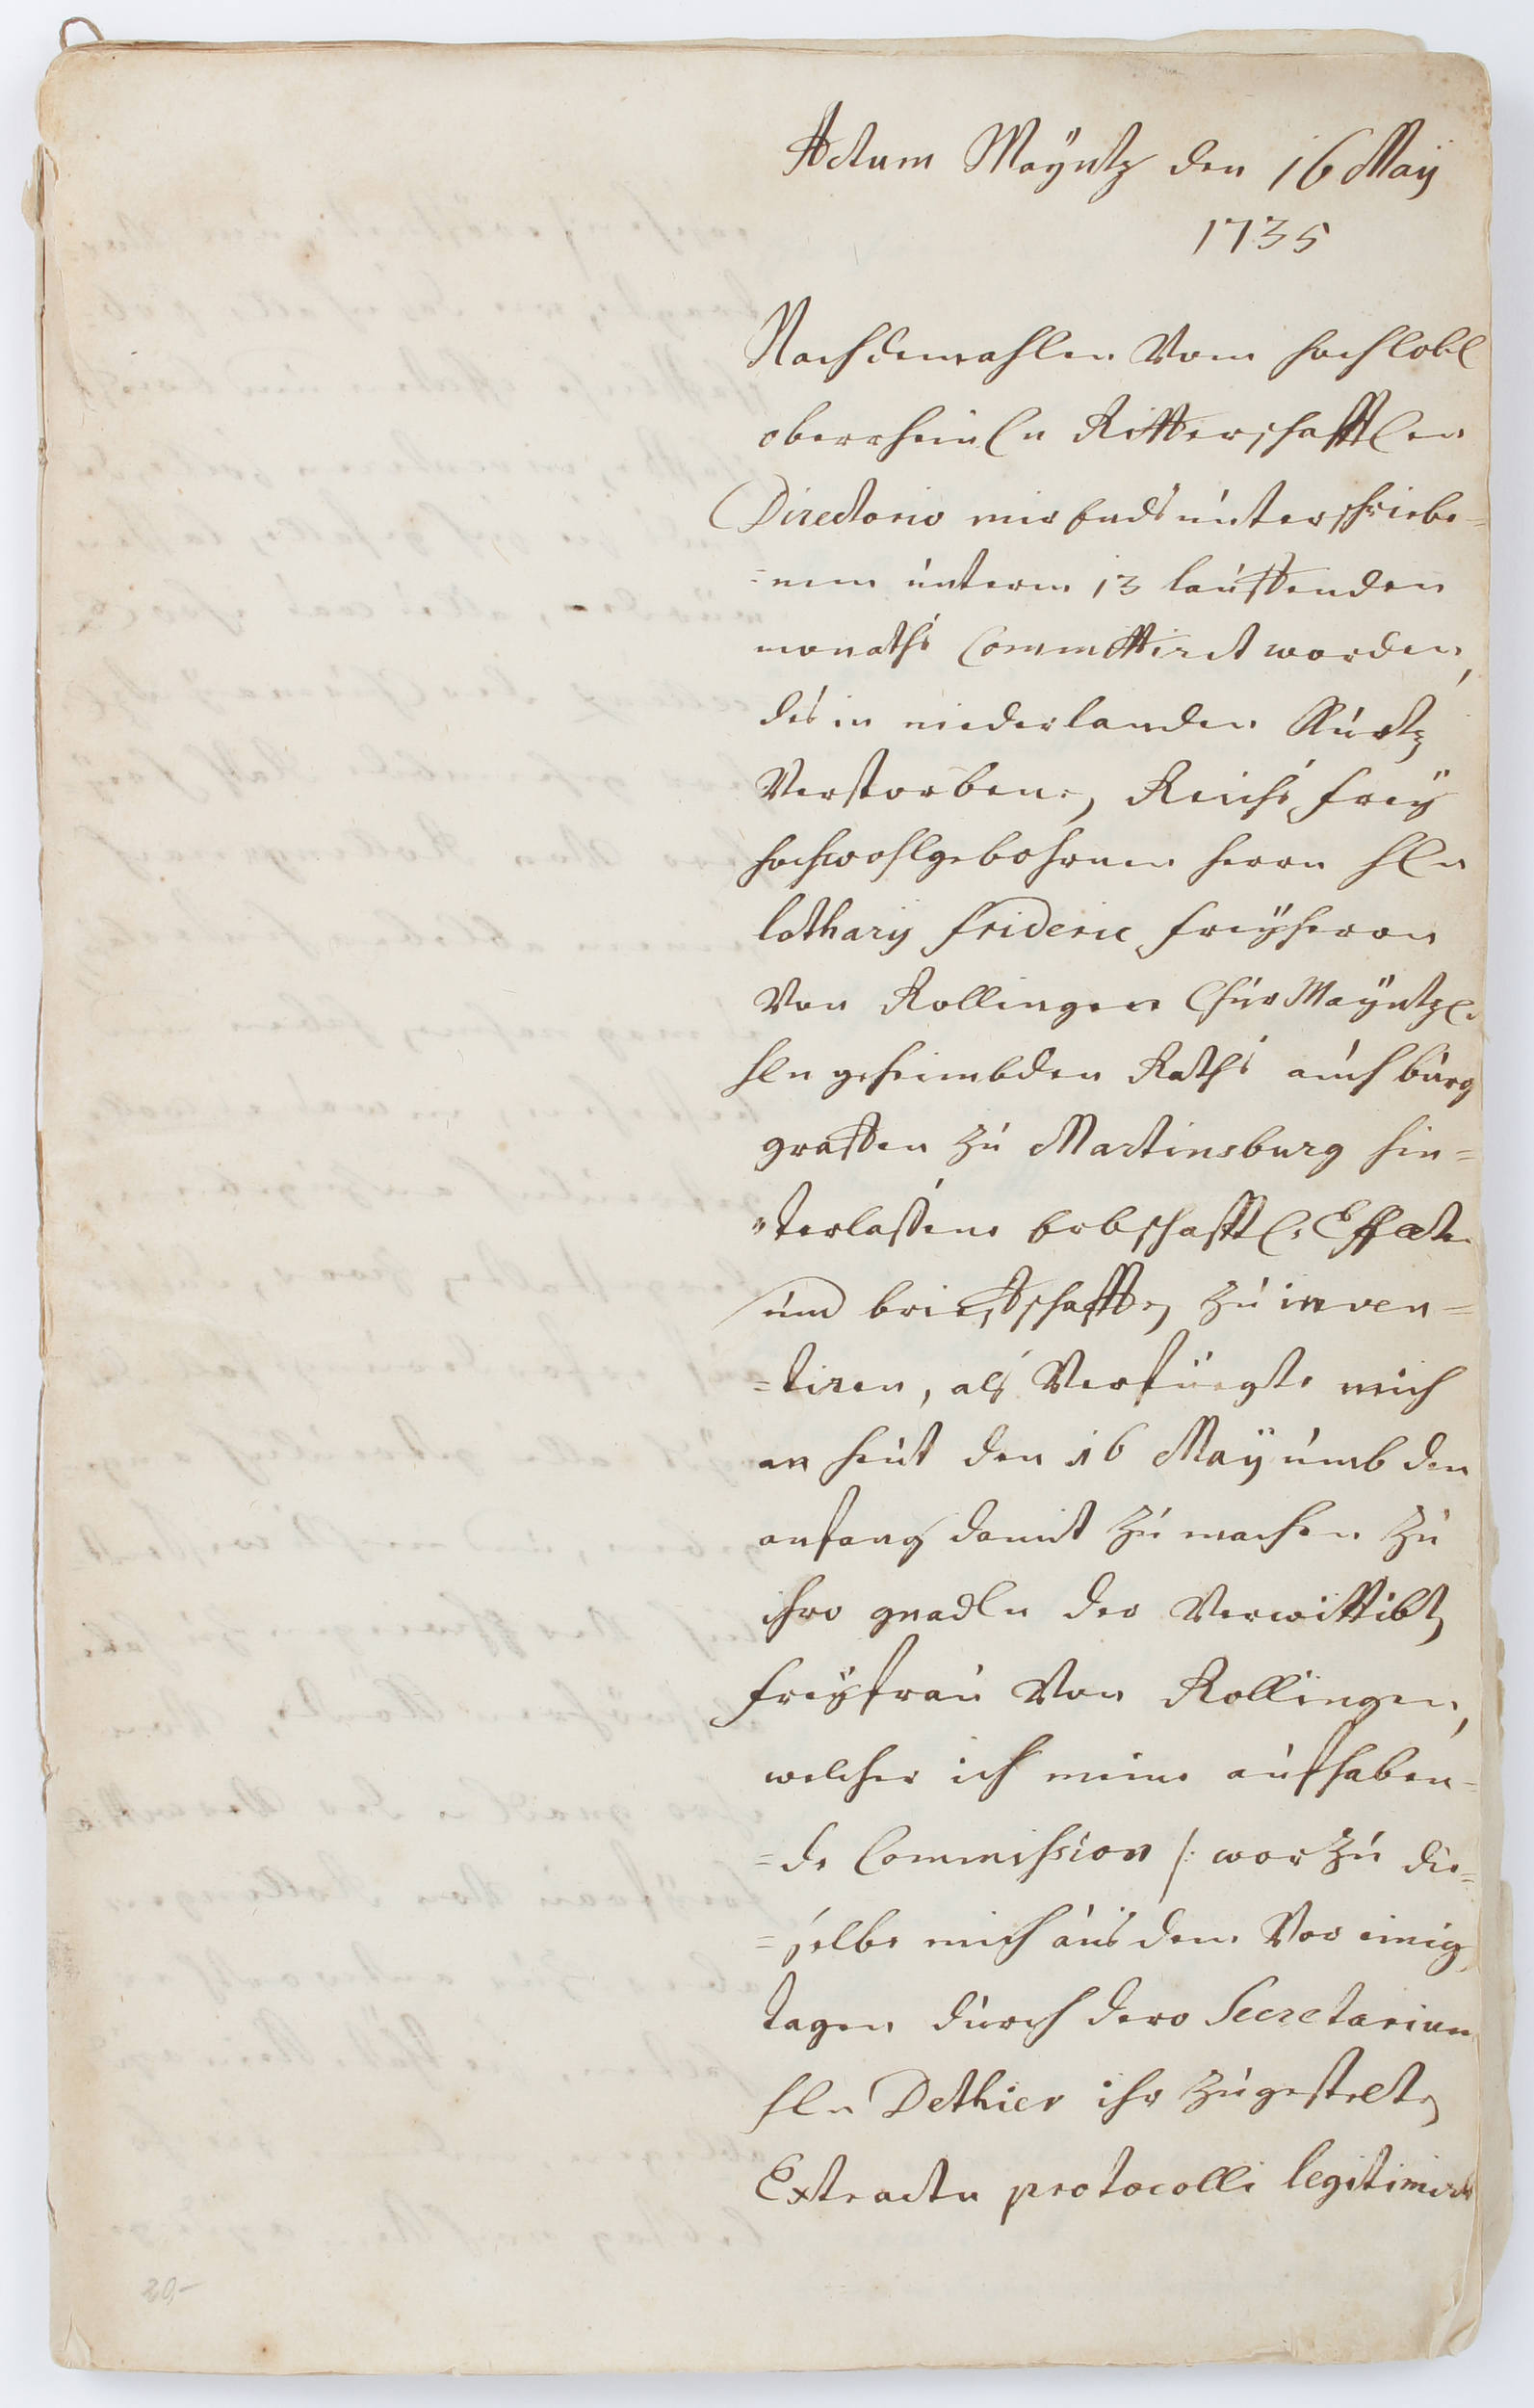 Actum Mäyntz den 16 Maÿ
1735
Nachdemahlen Vom hochlobl
oberrheinln Ritterschafftlen
Directorio mir Ends unterschriebe=
=nem unterm 13 lauffenden
monaths Committirt worden,
des in niederlanden Kurtz
Verstorbenen, Reichs freÿ
hochwohlgebohrnen herrn hln
lotharÿ frideric freÿherrn
Von Rollingen ChurMaÿntzl.
hln geheimbden Raths auch burg
graffen zu Martinsburg hin=
=terlaßene Erbschafftl. Effecten
und brieffschafften zu inven=
=tiren, als Verfüegte mich
an heut den 16 Maÿ umb den
anfang damit zu machen zu
ihro gnadln der Verwittibten
freÿfrau Von Rollingen,
welcher ich meine aufhaben=
=de Commission /: worzu die=
=selbe mich aus dem Vor einigen
tagen durch dero Secretarium
hln Dethier ihr zugestelten
Extractu protocolli legitimirt
20,-